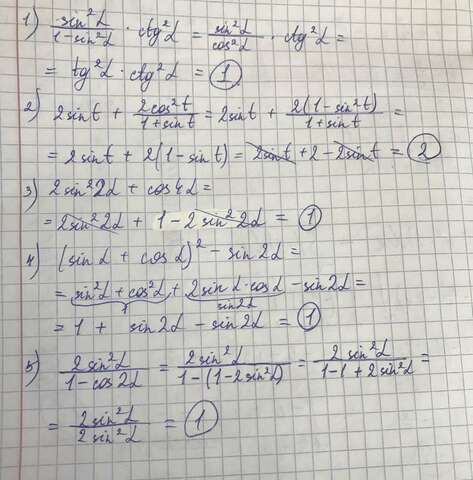 1) sin²α / (1-sin²α) · ctg²α = sin²α / cos²α · ctg²α =
= tg²α · ctg²α = 1
2) 2sint + 2cos²t / (1+sint) = 2sint + 2(1-sin²t) / (1+sint) =
= 2sint + 2(1-sint) = 2sint + 2 - 2sint = 2
3) 2sin²2α + cos4α =
= 2sin²2α + 1 - 2sin²2α = 1
4) (sinα + cosα)² - sin2α =
= sin²α + cos²α + 2sinα·cosα - sin2α =
1 sin2α
= 1 + sin2α - sin2α = 1
5) 2sin²α / (1-cos2α) = 2sin²α / (1-(1-2sin²α)) = 2sin²α / (1-1+2sin²α) =
= 2sin²α / 2sin²α = 1